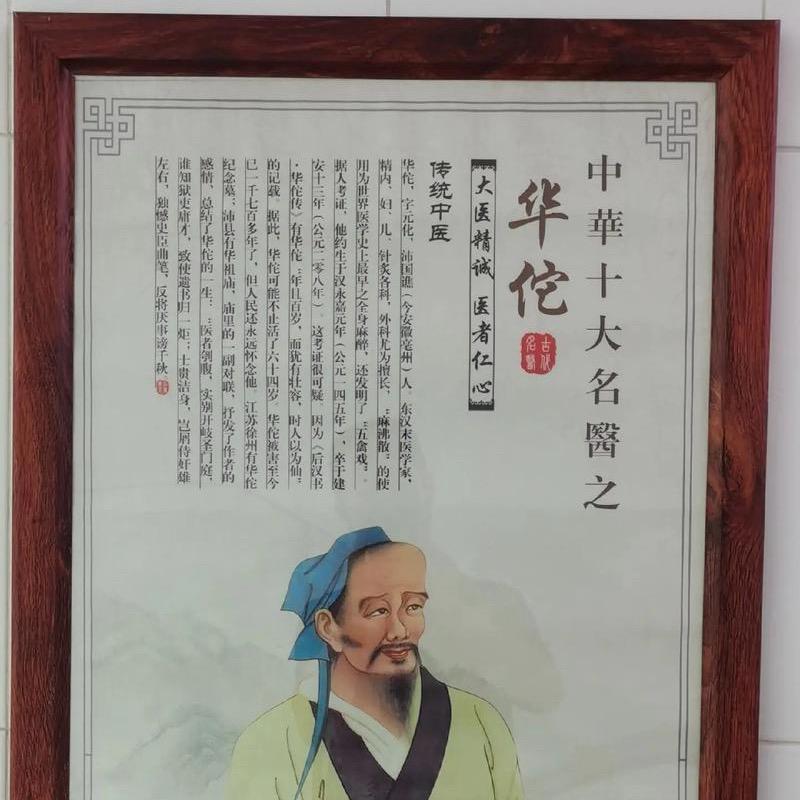 中華十大名醫之
华佗
古代名醫
大医精诚 医者仁心
传统中医
华佗，字元化，沛国谯（今安徽亳州）人。东汉末医学家，
精内、妇、儿、针炙各科，外科尤为擅长，“麻沸散”的使
用为世界医学史上最早之全身麻醉，还发明了“五禽戏”。
据人考证，他约生于汉永嘉元年（公元一四五年），卒于建
安十三年（公元二零八年）。这考证很可疑。因为《后汉书
·华佗传》有华佗“年且百岁，而犹有壮容，时人以为仙”
的记载。据此，华佗可能不止活了六十四岁。华佗被害至今
已一千七百多年了，但人民还永远怀念他。江苏徐州有华佗
纪念墓；沛县有华祖庙，庙里的一副对联，抒发了作者的
感情，总结了华佗的一生：“医者刳腹，实别开岐圣门庭，
谁知狱吏庸才，致使遗书归一炬；士贵洁身，岂屑侍奸雄
左右，独憾史臣曲笔，反将厌事谤千秋。